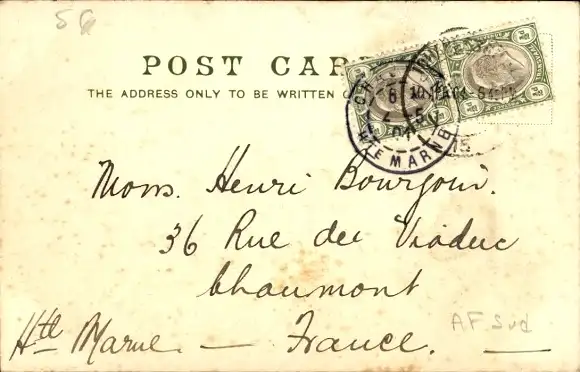 56
POST CARD
THE ADDRESS ONLY TO BE WRITTEN
HTE MARNE
Mons. Henri Bourgoin.
36 Rue du Viaduc
Chaumont
Hte Marne — France.
AF Sud